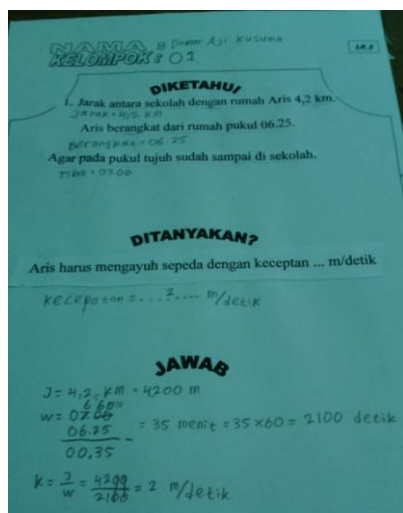 NAMA : Damar Aji Kusuma
KELOMPOK : 01
LK 2
DIKETAHUI
1. Jarak antara sekolah dengan rumah Aris 4,2 km.
Jarak = 4,2 km
Aris berangkat dari rumah pukul 06.25.
Berangkat = 06.25
Agar pada pukul tujuh sudah sampai di sekolah.
Tiba = 07.00
DITANYAKAN?
Aris harus mengayuh sepeda dengan keceptan ... m/detik
kecepatan = ...?.... m/detik
JAWAB
J = 4,2 km = 4200 m
6 60
w = 07.00
06.25 - = 35 menit = 35 x 60 = 2100 detik
00,35
k = J/w = 4200/2100 = 2 m/detik